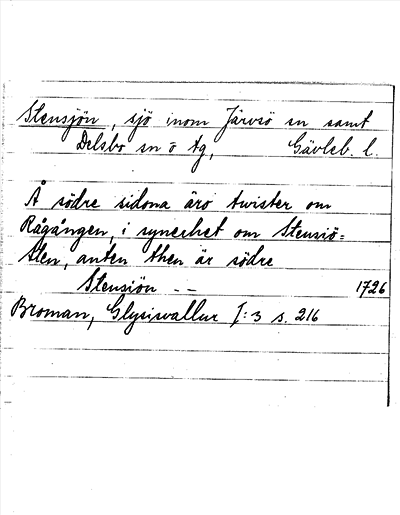 Stensjön, sjö inom Järvsö sn samt
Delsbo sn o tg, Gävleb. l.
Å södre sidona äro twister om
Rågången, i synerhet om Stensiö=
sten, anten then är södre
Stensiön -- 1726
Broman, Glysisvallur I:3 s. 216